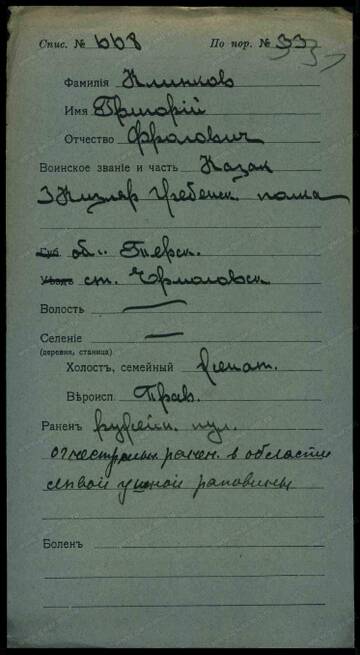 Спис. № 668 По пор. № 33
Фамилія Клинков
Имя Григорій
Отчество Фролович
Воинское званіе и часть Казак
3 Кизляр Гребенск. полка
Губ об. Терск.
Уѣздъ ст. Ермоловск
Волость —
Селеніе —
(деревня, станица)
Холостъ, семейный женат.
Вѣроисп. Прав.
Раненъ ружейн. пул.
огнестрельн. ранен. в области
левой ушной раковины
Боленъ